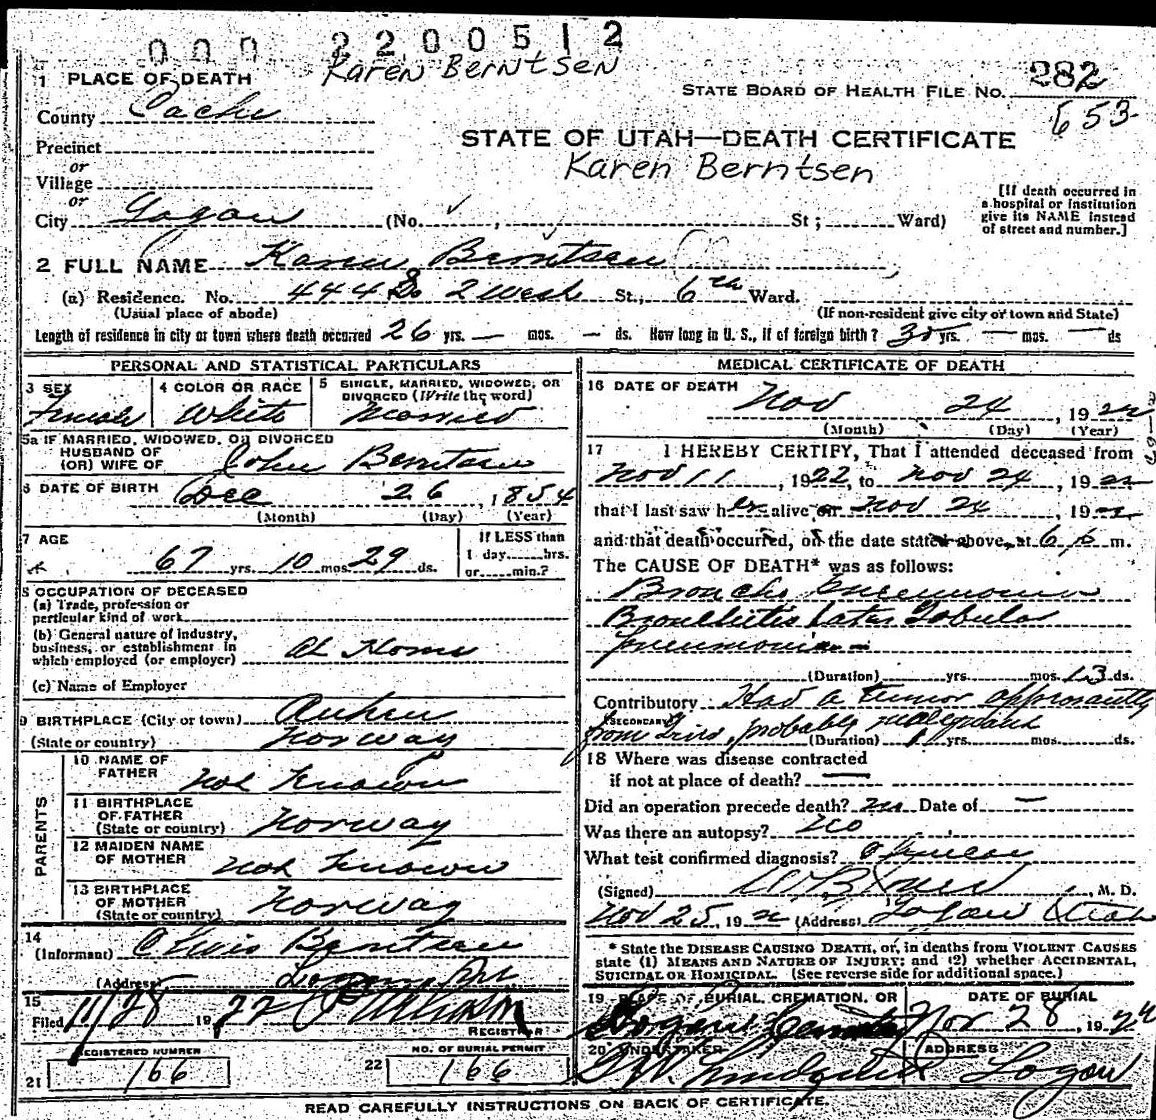 000 2200512
Karen Berntsen
1 PLACE OF DEATH
STATE BOARD OF HEALTH FILE NO. 282
653
County Cache
STATE OF UTAH—DEATH CERTIFICATE
Karen Berntsen
Precinct
or
Village
or
City Logan (No. , St; Ward)
[If death occurred in
a hospital or institution
give its NAME instead
of street and number.]
2 FULL NAME Karen Berntsen
(a) Residence. No. 444 So 2 West St., 6th Ward.
(Usual place of abode)
(If non-resident give city or town and State)
Length of residence in city or town where death occurred 26 yrs. — mos. — ds. How long in U. S., if of foreign birth? yrs. — mos. — ds
PERSONAL AND STATISTICAL PARTICULARS
3 SEX
Female
4 COLOR OR RACE
White
5 SINGLE, MARRIED, WIDOWED, OR
DIVORCED (Write the word)
Married
5a IF MARRIED, WIDOWED, OR DIVORCED
HUSBAND OF
(OR) WIFE OF John Berntsen
6 DATE OF BIRTH Dec 26, 1854
(Month) (Day) (Year)
7 AGE
67 yrs. 10 mos. 29 ds.
If LESS than
1 day hrs.
or min.?
8 OCCUPATION OF DECEASED
(a) Trade, profession or
perticular kind of work
(b) General nature of industry,
business, or establishment in
which employed (or employer) At Home
(c) Name of Employer
9 BIRTHPLACE (City or town)
(State or country) Norway
PARENTS
10 NAME OF
FATHER Not Known
11 BIRTHPLACE
OF FATHER
(State or country) Norway
12 MAIDEN NAME
OF MOTHER Not Known
13 BIRTHPLACE
OF MOTHER
(State or country) Norway
14
(Informant) Berntsen
(Address) Logan
15
Filed 11/28 1922
REGISTRAR
REGISTERED NUMBER
21 166
NO. OF BURIAL PERMIT
22 166
MEDICAL CERTIFICATE OF DEATH
16 DATE OF DEATH
Nov 24, 1922
(Month) (Day) (Year)
17 I HEREBY CERTIFY, That I attended deceased from
Nov 11, 1922, to Nov 24, 1922
that I last saw her alive on Nov 24, 1922
and that death occurred, on the date stated above, at 6 P. m.
The CAUSE OF DEATH* was as follows:
Broncho Pneumonia
Bronchitis later Lobular
Pneumonia
(Duration) yrs. mos. 13 ds.
Contributory Had a tumor apparantly
(SECONDARY)
from , probably malegnant
(Duration) yrs. mos. ds.
18 Where was disease contracted
if not at place of death? —
Did an operation precede death? no Date of —
Was there an autopsy? No
What test confirmed diagnosis?
(Signed) , M. D.
Nov 25, 1922 (Address) Logan Utah
* State the DISEASE CAUSING DEATH, or, in deaths from VIOLENT CAUSES
state (1) MEANS AND NATURE OF INJURY; and (2) whether ACCIDENTAL,
SUICIDAL OR HOMICIDAL. (See reverse side for additional space.)
19 PLACE OF BURIAL, CREMATION, OR
Logan
DATE OF BURIAL
Nov 28, 1922
20 UNDERTAKER
ADDRESS
Logan
READ CAREFULLY INSTRUCTIONS ON BACK OF CERTIFICATE.